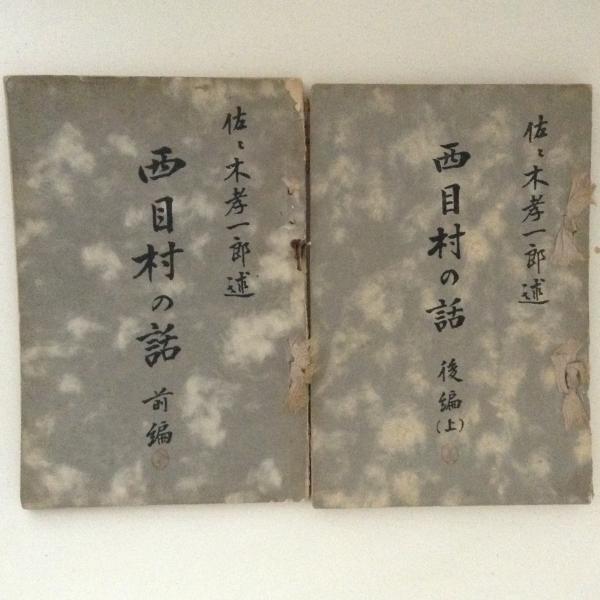 佐々木孝一郎述
西目村の話 前編
佐々木孝一郎述
西目村の話 後編(上)